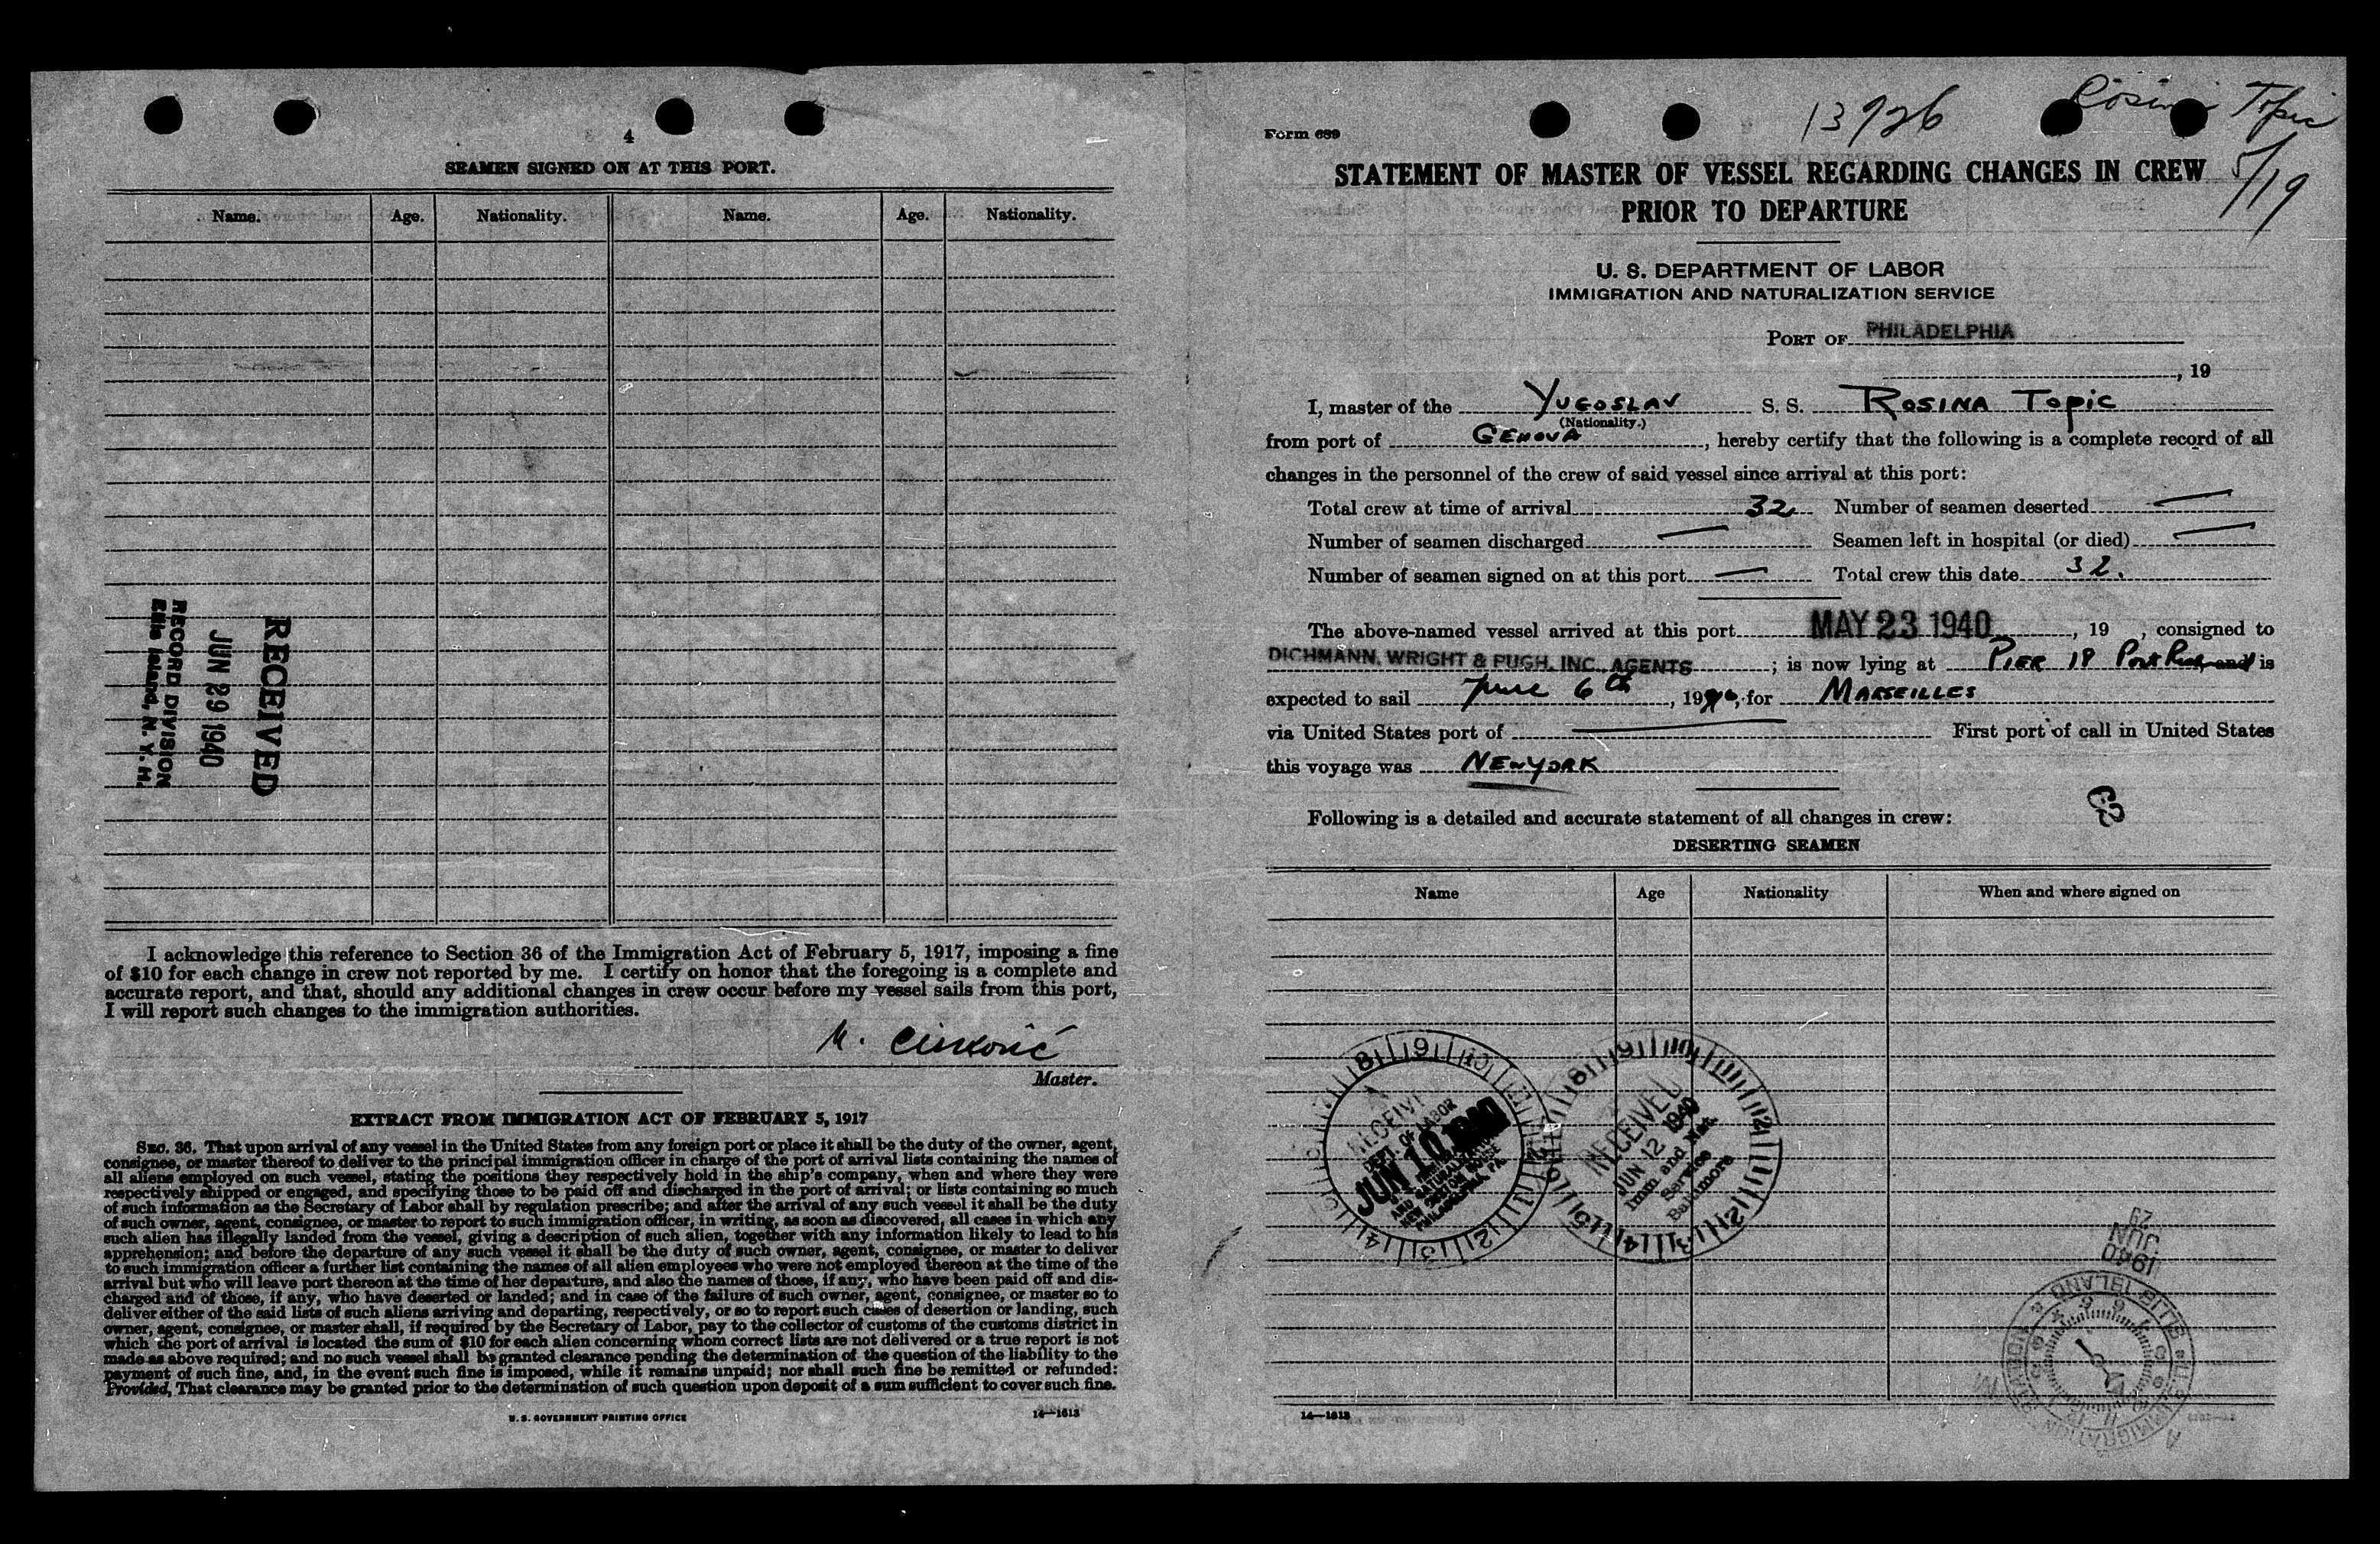 4
SEAMEN SIGNED ON AT THIS PORT.
Name. Age. Nationality. Name. Age. Nationality.
RECEIVED
JUN 29 1940
RECORD DIVISION
Ellis Island, N. Y. H.
I acknowledge this reference to Section 36 of the Immigration Act of February 5, 1917, imposing a fine
of $10 for each change in crew not reported by me. I certify on honor that the foregoing is a complete and
accurate report, and that, should any additional changes in crew occur before my vessel sails from this port,
I will report such changes to the immigration authorities.
Master.
EXTRACT FROM IMMIGRATION ACT OF FEBRUARY 5, 1917
SEC. 36. That upon arrival of any vessel in the United States from any foreign port or place it shall be the duty of the owner, agent,
consignee, or master thereof to deliver to the principal immigration officer in charge of the port of arrival lists containing the names of
all aliens employed on such vessel, stating the positions they respectively hold in the ship's company, when and where they were
respectively shipped or engaged, and specifying those to be paid off and discharged in the port of arrival; or lists containing so much
of such information as the Secretary of Labor shall by regulation prescribe; and after the arrival of any such vessel it shall be the duty
of such owner, agent, consignee, or master to report to such immigration officer, in writing, as soon as discovered, all cases in which any
such alien has illegally landed from the vessel, giving a description of such alien, together with any information likely to lead to his
apprehension; and before the departure of any such vessel it shall be the duty of such owner, agent, consignee, or master to deliver
to such immigration officer a further list containing the names of all alien employees who were not employed thereon at the time of the
arrival but who will leave port thereon at the time of her departure, and also the names of those, if any, who have been paid off and dis-
charged and of those, if any, who have deserted or landed; and in case of the failure of such owner, agent, consignee, or master so to
deliver either of the said lists of such aliens arriving and departing, respectively, or so to report such cases of desertion or landing, such
owner, agent, consignee, or master shall, if required by the Secretary of Labor, pay to the collector of customs of the customs district in
which the port of arrival is located the sum of $10 for each alien concerning whom correct lists are not delivered or a true report is not
made as above required; and no such vessel shall be granted clearance pending the determination of the question of the liability to the
payment of such fine, and, in the event such fine is imposed, while it remains unpaid; nor shall such fine be remitted or refunded:
Provided, That clearance may be granted prior to the determination of such question upon deposit of a sum sufficient to cover such fine.
U. S. GOVERNMENT PRINTING OFFICE 14—1613
Form 689
13926
Topic
5/19
STATEMENT OF MASTER OF VESSEL REGARDING CHANGES IN CREW
PRIOR TO DEPARTURE
U. S. DEPARTMENT OF LABOR
IMMIGRATION AND NATURALIZATION SERVICE
PORT OF PHILADELPHIA
, 19
I, master of the YUGOSLAV S. S. ROSINA TOPIC
(Nationality.)
from port of GENOVA, hereby certify that the following is a complete record of all
changes in the personnel of the crew of said vessel since arrival at this port:
Total crew at time of arrival 32 Number of seamen deserted —
Number of seamen discharged — Seamen left in hospital (or died) —
Number of seamen signed on at this port — Total crew this date 32.
The above-named vessel arrived at this port MAY 23 1940, 19 , consigned to
DICHMANN, WRIGHT & PUGH, INC., AGENTS; is now lying at PIER 18 Port and is
expected to sail June 6th, 1940, for MARSEILLES
via United States port of — First port of call in United States
this voyage was NEW YORK
Following is a detailed and accurate statement of all changes in crew:
DESERTING SEAMEN
Name Age Nationality When and where signed on
RECEIVED
DEPT. OF LABOR
JUN 10 1940
AND NATURALIZATION
NEW CUSTOM HOUSE
PHILADELPHIA, PA.
RECEIVED
JUN 12 1940
Imm and Nat.
Service
Baltimore
1940
JUN
29
ELLIS ISLAND
IMMIGRATION
14—1613